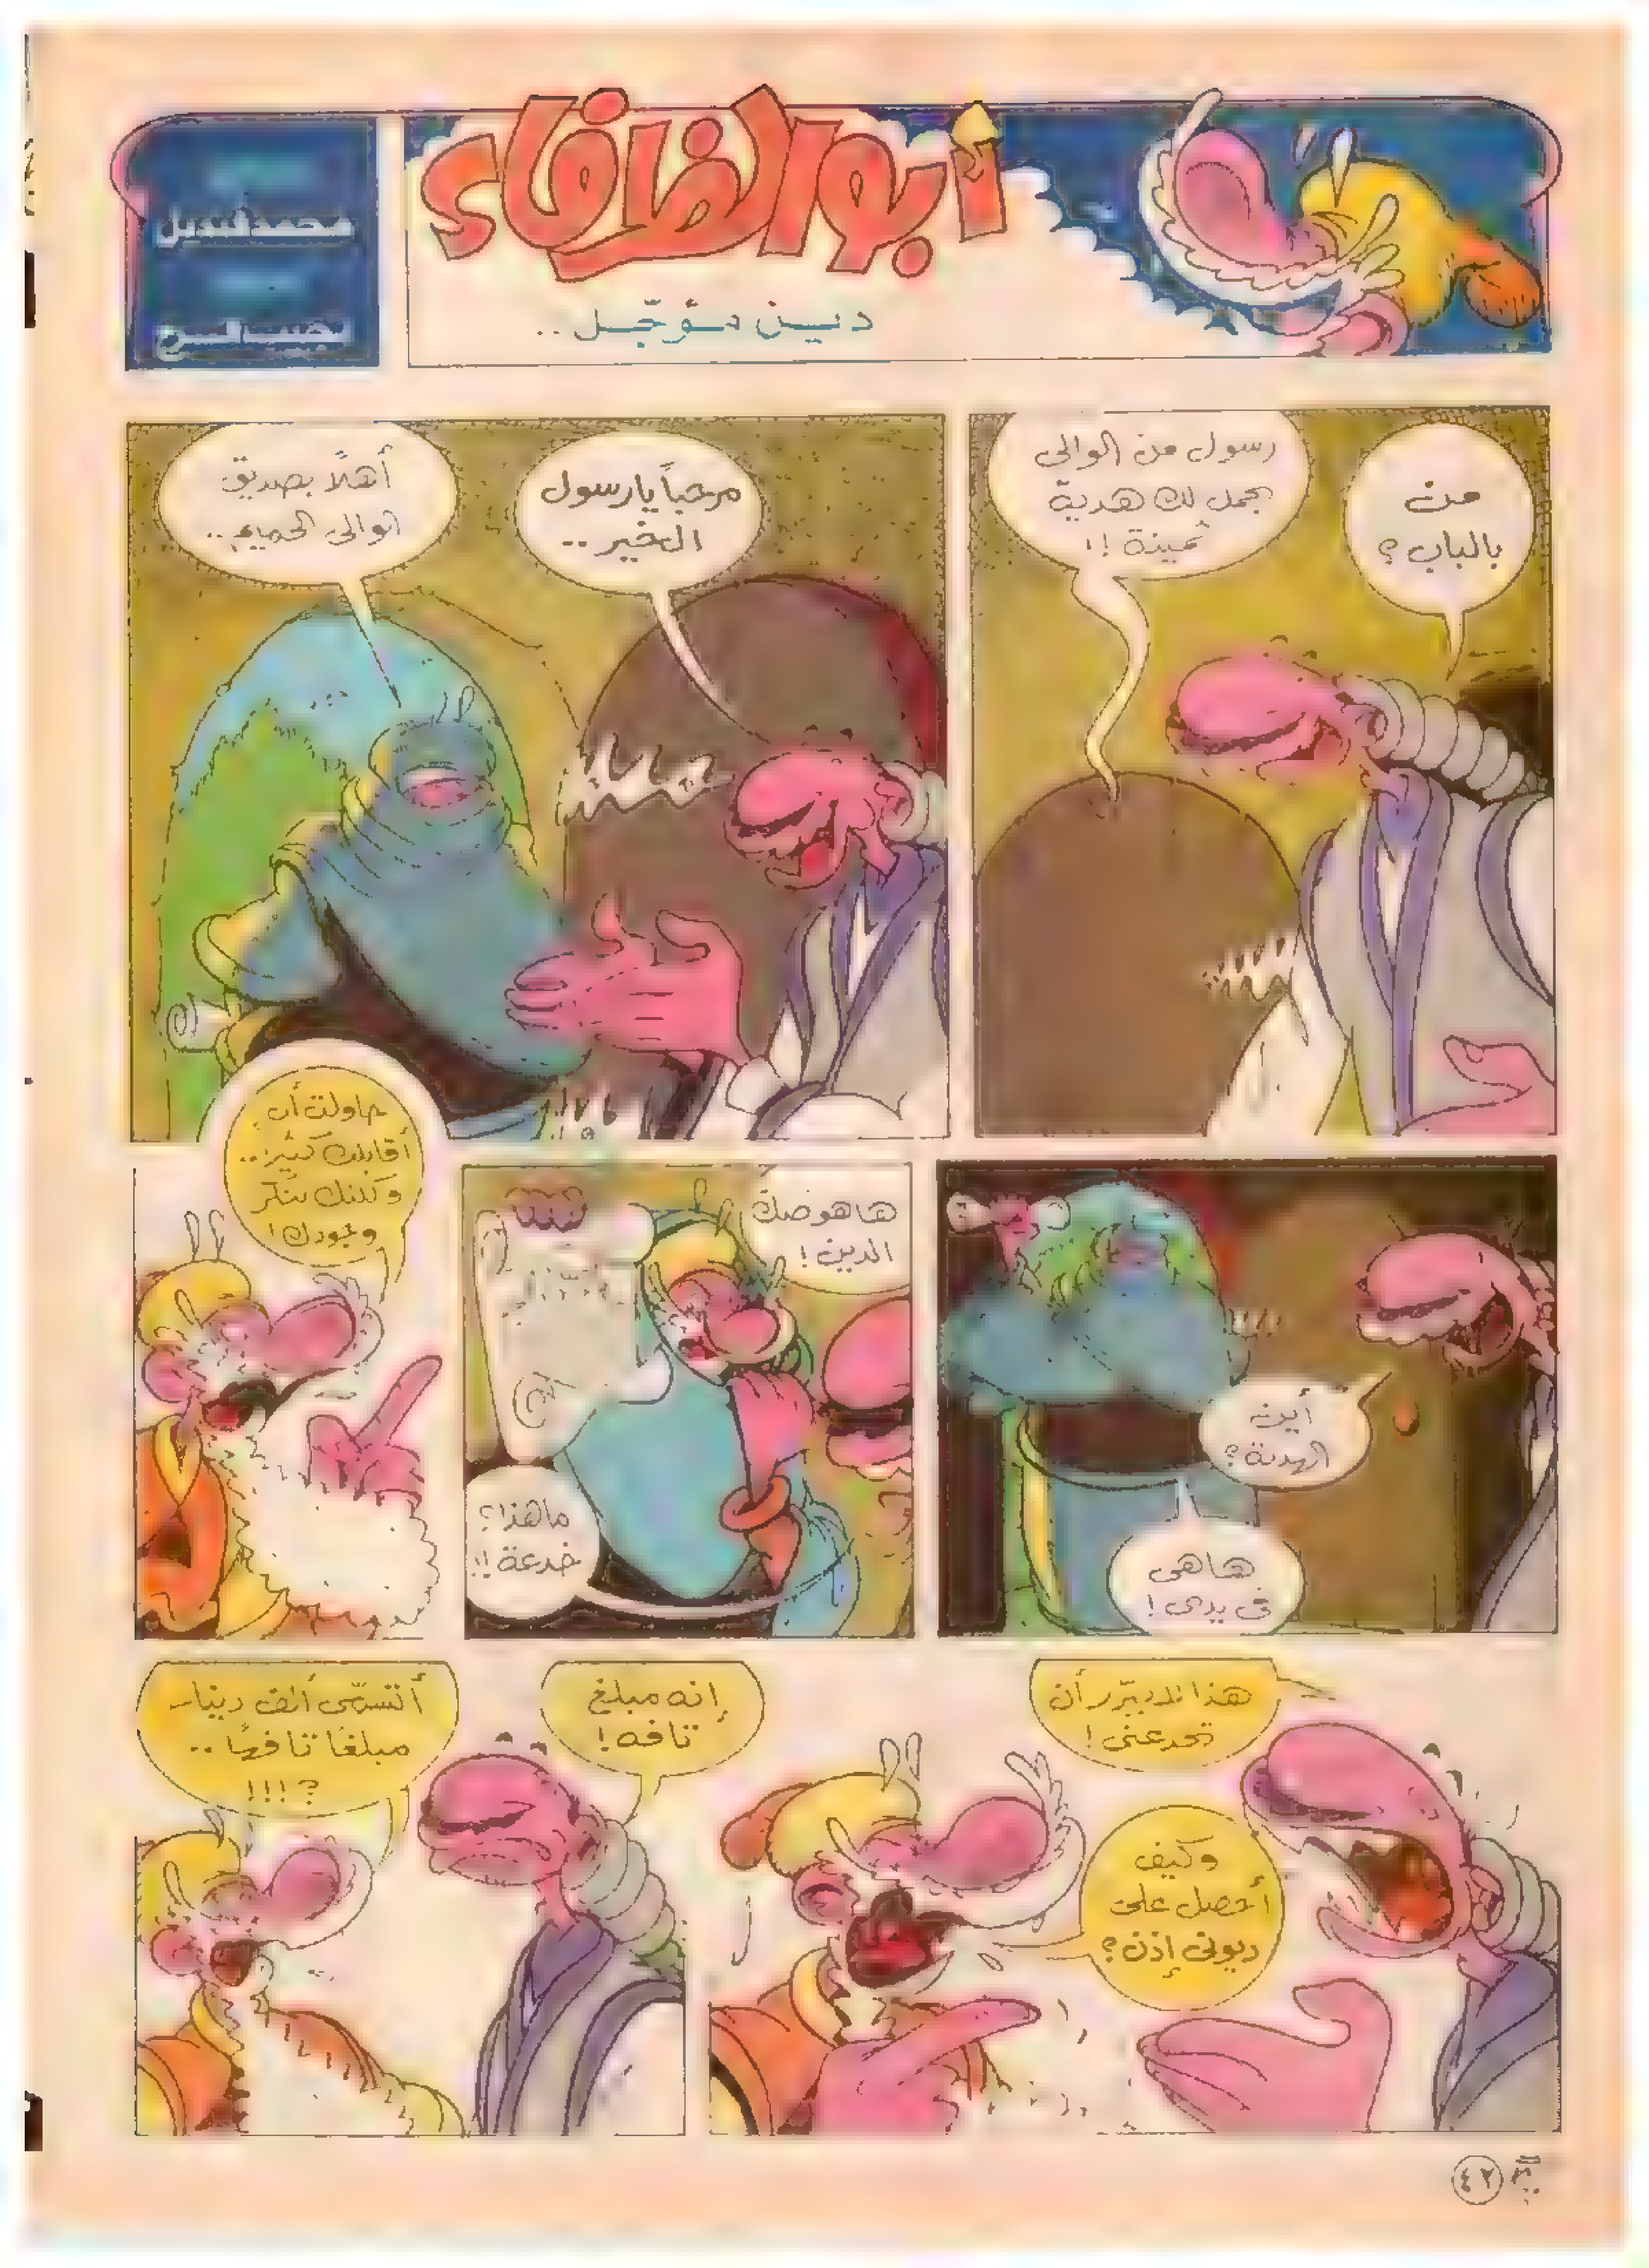 أبو الظرفاء
دين مؤجّل..
محمد قنديل
من
بالباب؟
رسول من الوالى
يحمل لك هدية
ثمينة!!
مرحباً يا رسول
الخير..
أهلاً بصديق
الوالى الحميم..
أين
الهدية؟
ها هى
فى يدى!
ها هو صك
الدين!
ما هذا؟
خدعة!!
حاولت أن
أقابلك كثيرًا..
ولكنك تنكر
وجودك!
هذا لا يبرّر أن
تخدعنى!
وكيف
أحصل على
ديونى إذن؟
إنه مبلغ
تافه!
أتسمّى ألف دينار
مبلغًا تافهًا..
؟!!!
٤٢